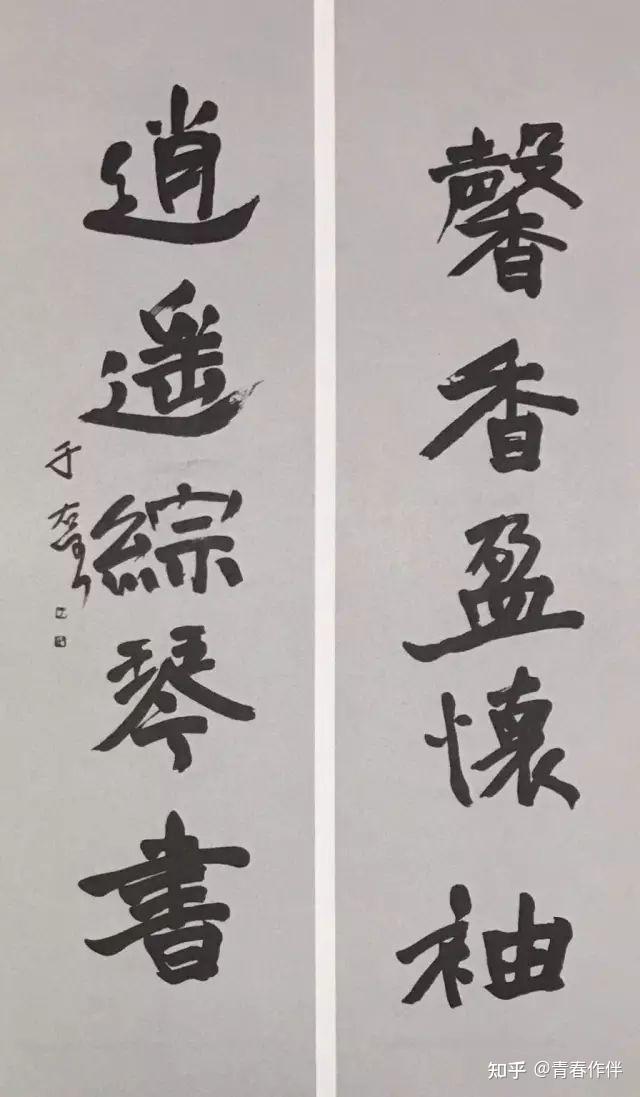 馨香盈懷袖
逍遥綜琴書
于右任
知乎 @青春作伴